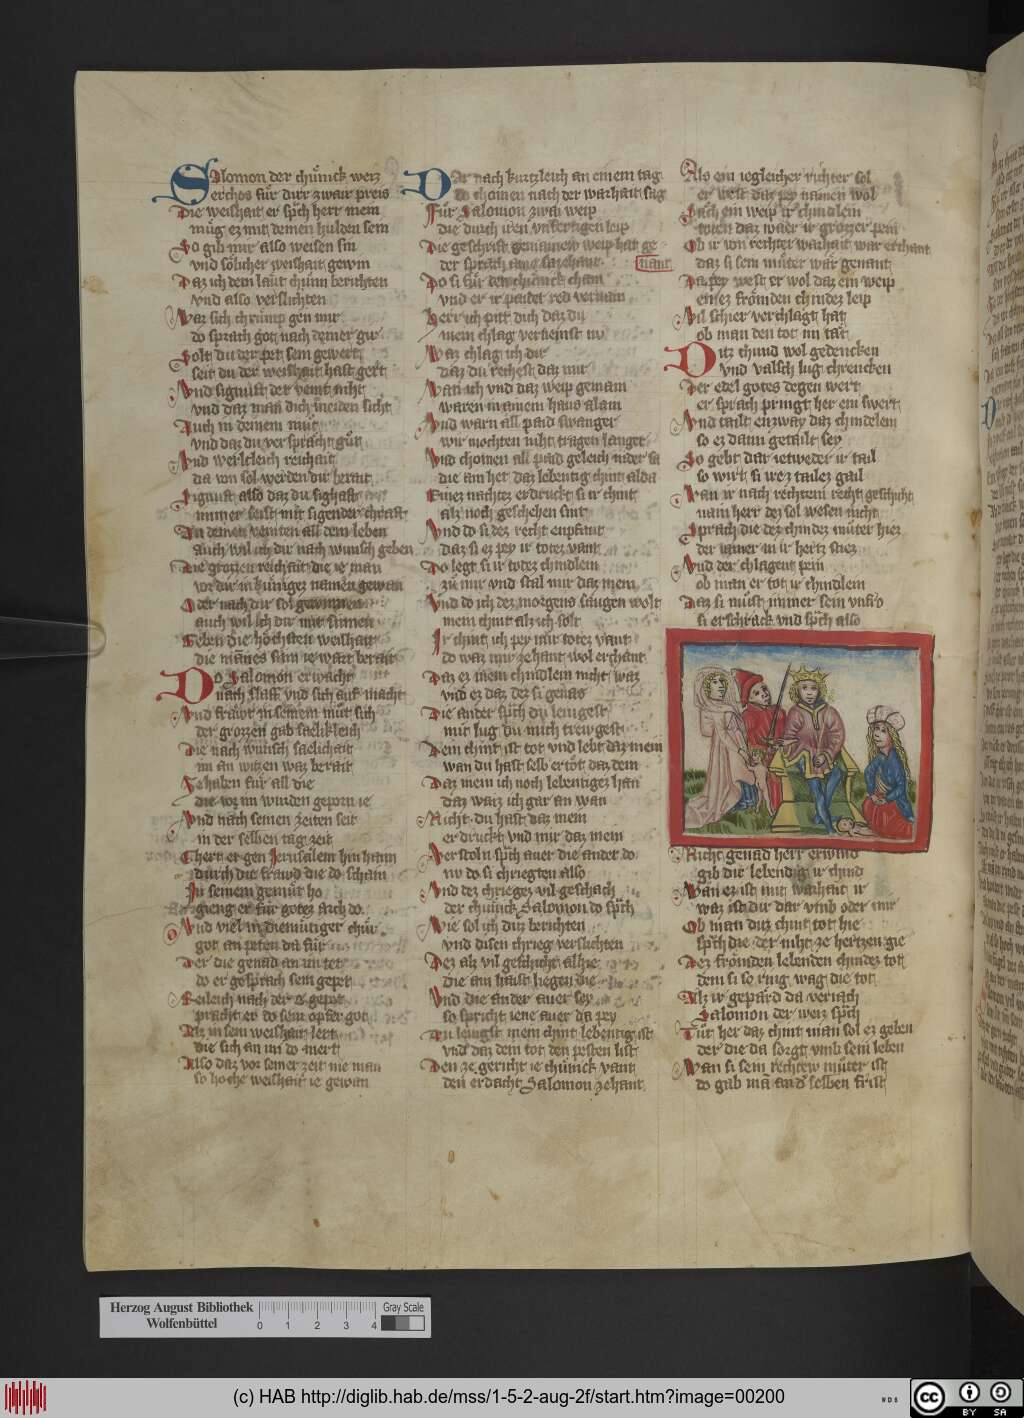 Salomon der chünick weiz
Die weishait er sprach herr mein
müg ez mit deinen hulden sein
So gib mir also weisen sin
vnd sölicher weishait gewin
Daz ich dein laüt chünn berichten
vnd also verslichten
Waz sich chrump gen mir
do sprach got nach deiner gir
Solt du der pet sein gewert
seit du der weishait hast gert
Vnd
vnd daz man dich meiden sicht
Auch in deinem müt
vnd daz du versprächt güt
Vnd werltleich reichait
da von sol werden dir berait
also daz du sighaft
immer seist mit sigender chraft
An deinen veinten all dein leben
auch wil ich dir nach wunsch geben
Die grozzen reichait die ie man
vor dir in küniges namen gewan
Oder nach dir sol gewinnen
auch wil ich dir mit sinnen
Geben die höchsten weishait
die mannes sinn ie wart berait
Do Salomon erwacht
nach slaff vnd sich auf macht
Vnd fräwt in seinem müt sich
der grozzen gab saelikleich
Die nach wunsch saelichait
im an witzen waz berait
Ze haben für all die
die vor im wurden geporn ie
Vnd nach seinen zeiten seit
in der selben tag zeit
Chert er gen Jerusalem hin hann
durch die fräwd die do schain
In seinem gemüt ho
gieng er für gotez Arch do
Vnd viel in diemütiger chür
got an peten da für
Der die genad an im tet
do er gesprach sein gepet
nach der e gepot
pracht er do sein opfer got
Als in sein weishait lert
die sich an im do mert
Also daz vor seiner zeit nie man
so hoche weishait ie gewan
Dar nach kurtzleich an einem tag
do chomen nach der warhait sag
Für Salomon zwai weip
die durch iren
Die geschrift gemainew weip hat ge
nant
der sprach aine sazehant
Do si für den chünick cham
vnd er ir paider red vernam
Herr ich pitt dich daz du
mein chlag vernemst nu
Waz chlag ich dir
daz du rechest daz mir
Wan ich vnd daz weip gemain
waren in ainem haus alain
Vnd warn all paid swanger
wir mochten niht tragen langer
Vnd chomen all paid geleich nider sa
die ain het daz lebentig chint alda
Einez nachtez erdruckt si ir chint
alz noch geschehen sint
Vnd do si dez recht enpfant
daz si ez pey ir totez vant
Do legt si ir totez chindlein
zü mir vnd stal mir daz mein
Vnd do ich dez morgens säugen wolt
mein chint alz ich solt
Ir chint ich pey mir totez vant
do waz mir zehant wol erchant
Daz ez mein chindlein nicht waz
vnd ez daz der si genas
Die ander sprach du leugest
mit lug du mich treugest
Dein chint ist tot vnd lebt daz mein
wan du hast selb ertöt daz dein
Daz mein ich noch lebentigez han
daz waiz ich gar an wan
Nicht du hast daz mein
erdruckt vnd mir daz mein
Verstoln sprach auer die ander do
nu do si chriegten also
Vnd dez chrieges vil geschach
der chünick Salomon do sprach
Wie sol ich ditz berichten
vnd disen chrieg verslichten
Dez alz vil geschicht alhie
die ain haist liegen die
Vnd die ander auer sey
so spricht iene auer da pey
Du leugst mein chint lebentig ist
vnd daz dein tot den pesten list
Den ze gericht ie chünick vant
den erdacht Salomon zehant
Als ein iegleicher richter sol
er west daz pey namen wol
Nach ein weip ir chindlein
toten daz waer ir grozzer pein
Ob ir von rechter warhait war erchant
daz si sein müter wär genant
Da pey west er wol daz ein weip
einez frömden chindez leip
Vil schier verchlagt hat
ob man den tot im tät
Ditz chund wol gedencken
vnd valsch lug chrencken
Der edel gotes degen wert
er sprach pringt her ein swert
Vnd tailt enzway daz chindelein
so ez dann getailt sey
So gebt dar ietweder ir tail
so wirt si irez tailez gail
Wan ir nach rechtem recht geschicht
nain herr dez sol wesen nicht
Sprach die dez chindez müter hiez
der iamer in ir hertz stiez
Vnd der chlagent pein
ob man er tot ir chindlein
Daz si müst immer sein vnfro
si erschrack vnd sprach also
Nicht genad herr erwind
gib dir lebendig ir chind
Wan ez ist mit warhait ir
waz ist dir dar vmb oder mir
Ob man ditz chint tot hie
sprach die der niht ze hertzen gie
Dez frömden lebenden chindez tot
dem si so ring wag die tot
Alz ir gepärd da veriach
Salomon der weiz sprach
Für her daz chint man sol ez geben
der die da sorgt vmb sein leben
Wan si sein rechtew müter ist
do gab man and selben frist
Herzog August Bibliothek
Wolfenbüttel
0 1 2 3 4
Gray Scale
(c) HAB http://diglib.hab.de/mss/1-5-2-aug-2f/start.htm?image=00200
WDB
cc BY SA